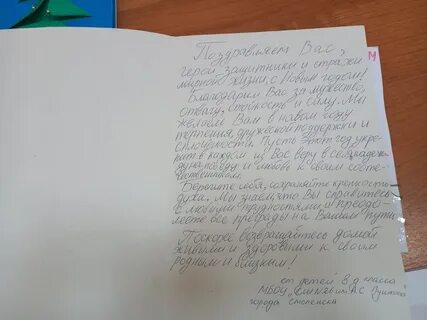 Поздравляем Вас,
герои, Защитники и стражи
мирной жизни, с Новым годом!
Благодарим Вас за мужество,
отвагу, стойкость и силу. Мы
желаем Вам в новом году
терпения, дружеской поддержки и
сплочённости. Пусть этот год укре-
пит в каждом из Вас веру в себя, надежду
на победу и любовь к своим сооте-
чественникам.
Берегите себя, сохраняйте крепкость
духа. Мы знаем, что Вы справитесь
с любыми трудностями и преодо-
леете все преграды на Вашем пути.
Поскорее возвращайтесь домой
живыми и здоровыми к своим
родным и близким!
от детей 8 д класса
МБОУ им. А.С Пушкина
города Смоленска
М